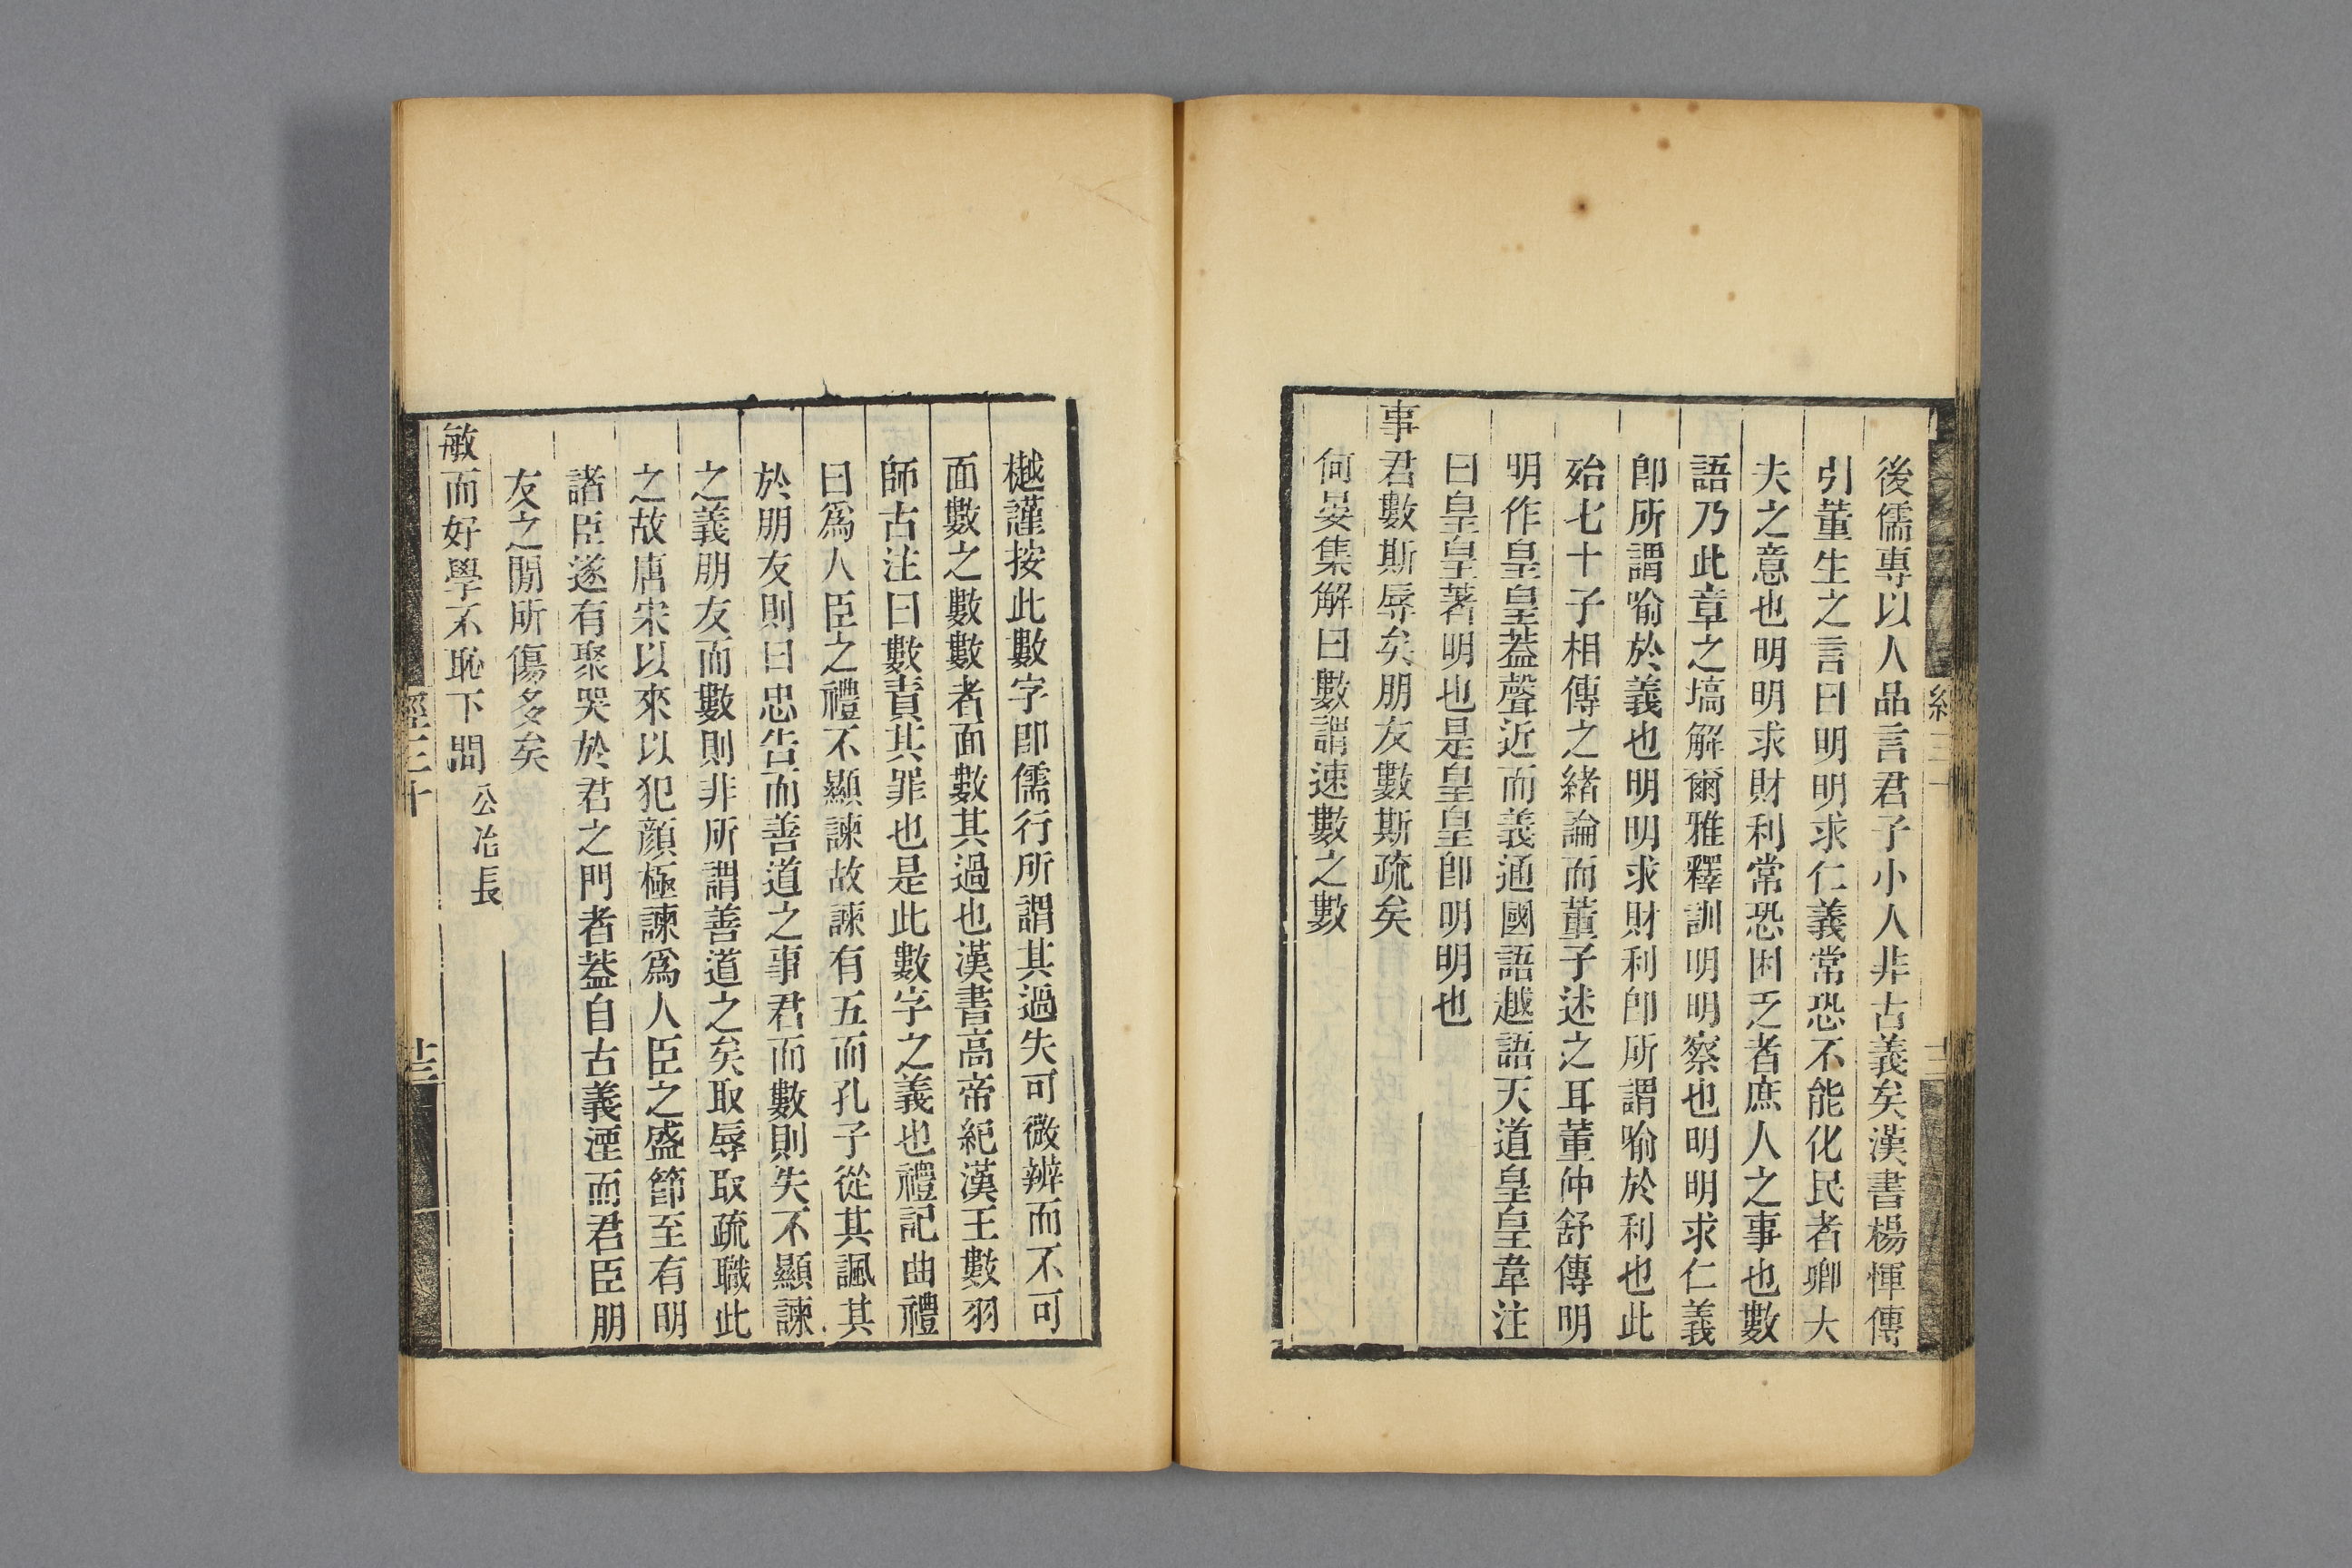 後儒專以人品言君子小人非古義矣漢書楊惲傳
引董生之言曰明明求仁義常恐不能化民者卿大
夫之意也明明求財利常恐困乏者庶人之事也數
語乃此章之塙解爾雅釋訓明明察也明明求仁義
卽所謂喻於義也明明求財利卽所謂喻於利也此
殆七十子相傳之緒論而董子述之耳董仲舒傳明
明作皇皇蓋聲近而義通國語越語天道皇皇韋注
曰皇皇著明也是皇皇卽明明也
事君數斯辱矣朋友數斯疏矣
何晏集解曰數謂速數之數
樾謹按此數字卽儒行所謂其過失可微辨而不可
面數之數數者面數其過也漢書高帝紀漢王數羽
師古注曰數責其罪也是此數字之義也禮記曲禮
曰爲人臣之禮不顯諫故諫有五而孔子從其諷其
於朋友則曰忠告而善道之事君而數則失不顯諫
之義朋友而數則非所謂善道之矣取辱取疏職此
之故唐宋以來以犯顏極諫爲人臣之盛節至有明
諸臣遂有聚哭於君之門者蓋自古義湮而君臣朋
友之閒所傷多矣
敏而好學不恥下問 公冶長
經三十